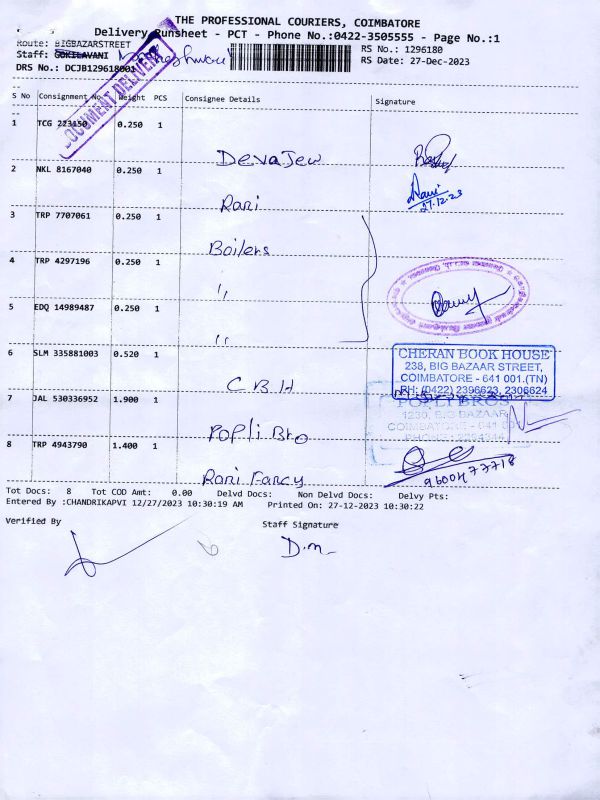 THE PROFESSIONAL COURIERS, COIMBATORE
Delivery Runsheet - PCT - Phone No.:0422-3505555 - Page No.:1
Route: BIGBAZARSTREET
RS No.: 1296180
Staff: GOKILAVANI
RS Date: 27-Dec-2023
DRS No.: DCJB129618001
DOCUMENT DELIVERY
S No Consignment No Weight PCS Consignee Details Signature
1 TCG 223150 0.250 1 Devajew
2 NKL 8167040 0.250 1 Rani
27.12.23
3 TRP 7707061 0.250 1 Boilers
4 TRP 4297196 0.250 1 "
5 EDQ 14989487 0.250 1 "
6 SLM 335881003 0.520 1 CBH
CHERAN BOOK HOUSE
238, BIG BAZAAR STREET,
COIMBATORE - 641 001.(TN)
PH: (0422) 2396623, 2306624
7 JAL 530336952 1.900 1 Popli Bro
POPLI BROS
1230, BIG BAZAAR
COIMBATORE - 641 001
8 TRP 4943790 1.400 1 Rani Fancy
9600477718
Tot Docs: 8 Tot COD Amt: 0.00 Delvd Docs: Non Delvd Docs: Delvy Pts:
Entered By :CHANDRIKAPVI 12/27/2023 10:30:19 AM Printed On: 27-12-2023 10:30:22
Verified By
Staff Signature
D.m